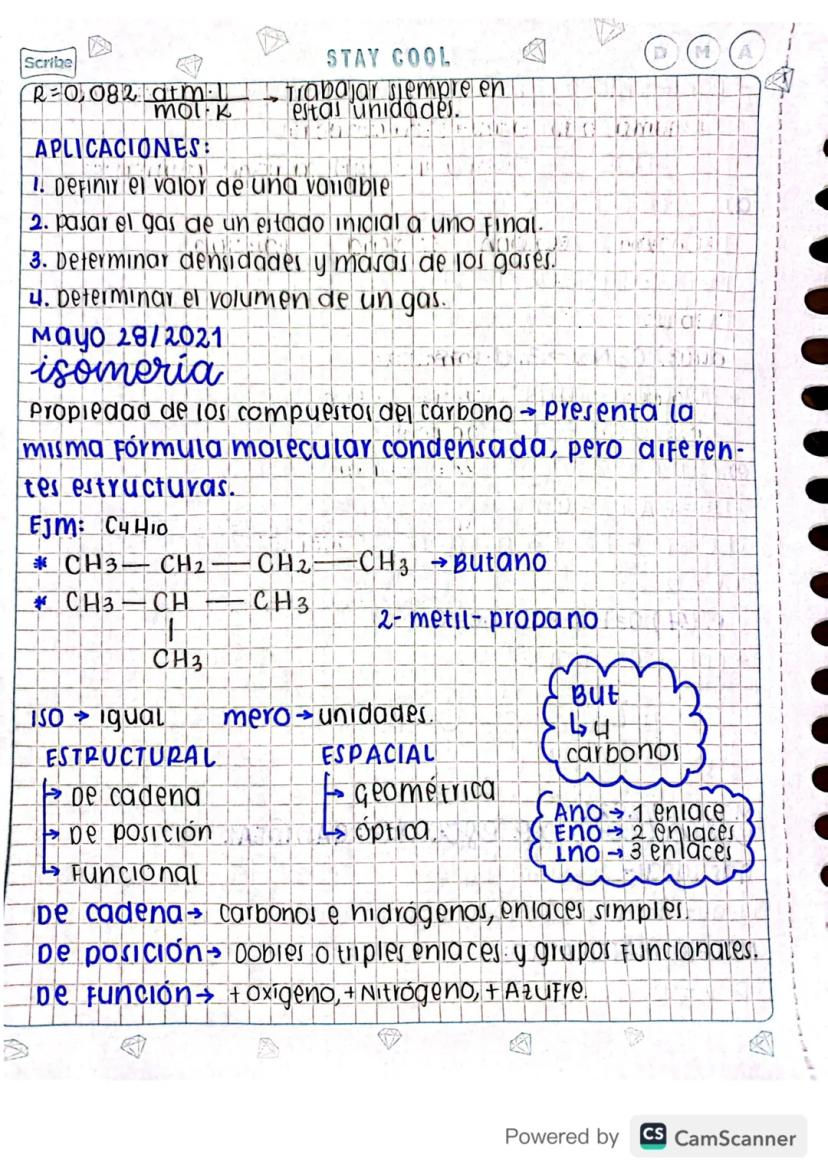 Scribe
STAY COOL
D M A
R=0,082 atm·l → Trabajar siempre en
mol·K estas unidades.
APLICACIONES:
1. Definir el valor de una variable
2. Pasar el gas de un estado inicial a uno Final.
3. Determinar densidades y masas de los gases.
4. Determinar el volumen de un gas.
Mayo 28/2021
isomería
Propiedad de los compuestos del carbono → Presenta la
misma Fórmula molecular condensada, pero diferen-
tes estructuras.
Ejm: C4H10
* CH3 — CH2 — CH2 — CH3 → Butano
* CH3 — CH — CH3
|
CH3
2-metil-propano
ISO → igual mero → unidades.
But
↳ 4
carbonos
ESTRUCTURAL
→ De cadena
→ De posición
↳ Funcional
ESPACIAL
→ Geométrica
↳ Óptica.
Ano → 1 enlace
Eno → 2 enlaces
Ino → 3 enlaces
De cadena → carbonos e hidrógenos, enlaces simples.
De posición → Dobles o triples enlaces y grupos Funcionales.
De Función → + Oxígeno, + Nitrógeno, + Azufre.
Powered by CS CamScanner